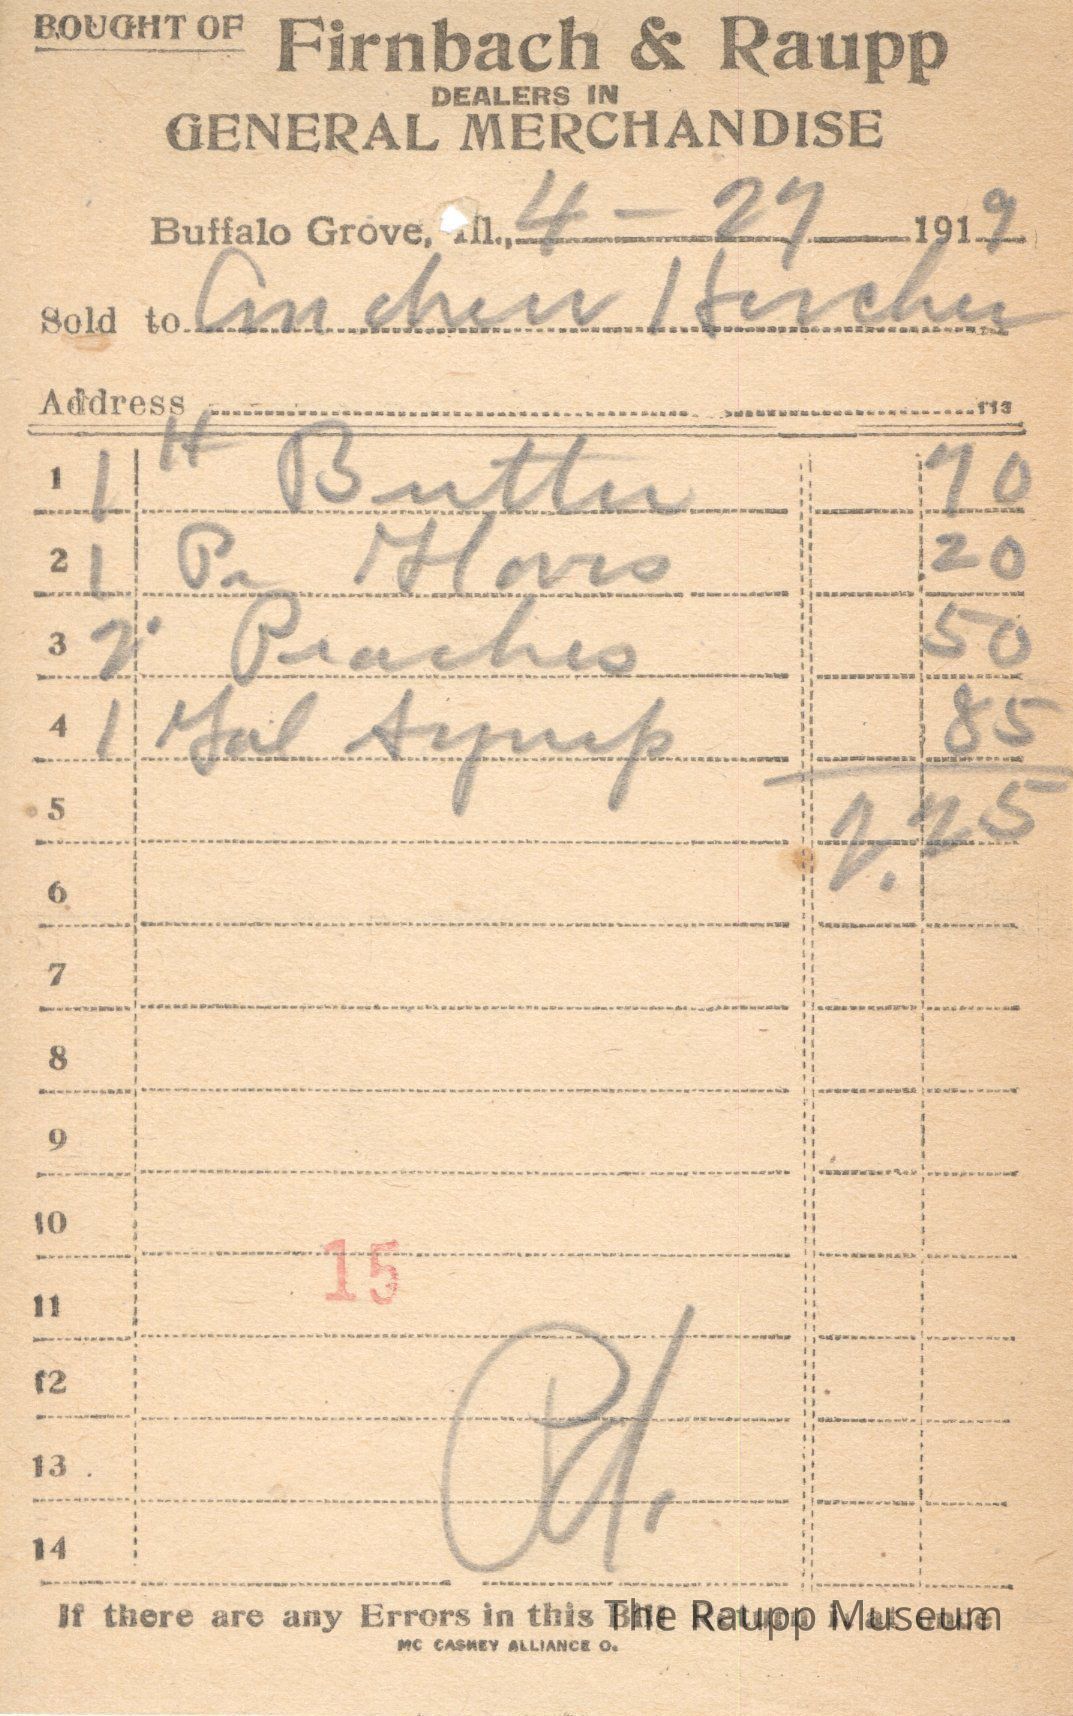 BOUGHT OF Firnbach & Raupp
DEALERS IN
GENERAL MERCHANDISE
Buffalo Grove, Ill., 4 - 27 1919
Sold to Andrew Hircher
Address 113
1 1 # Butter 70
2 1 Pr Gloves 20
3 2 Peaches 50
4 1 Gal Syrup 85
5 2.25
6
7
8
9
10
15
11
12
Pd.
13
14
If there are any Errors in this Bill Return it at once
The Raupp Museum
MC CASKEY ALLIANCE O.